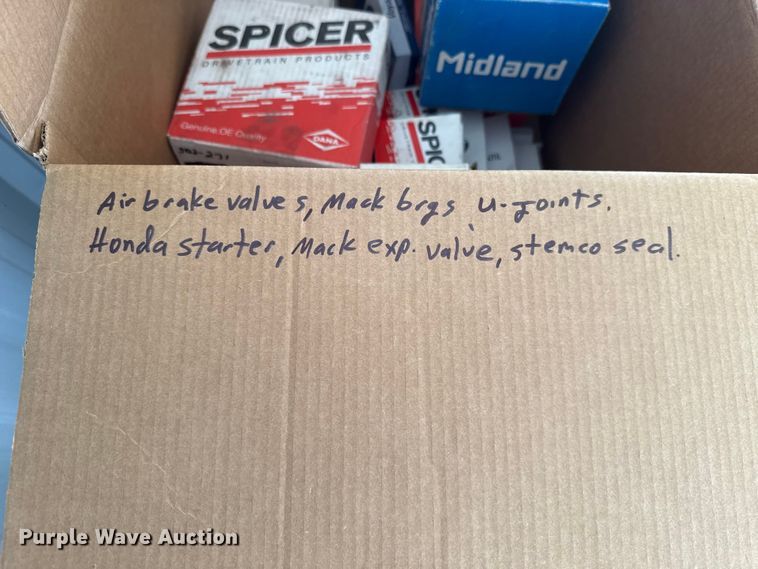 SPICER
DRIVETRAIN PRODUCTS
Genuine OE Quality
DANA
Midland
SPIC
Air brake valves, Mack brgs, u-joints.
Honda starter, Mack exp. valve, stemco seal.
Purple Wave Auction